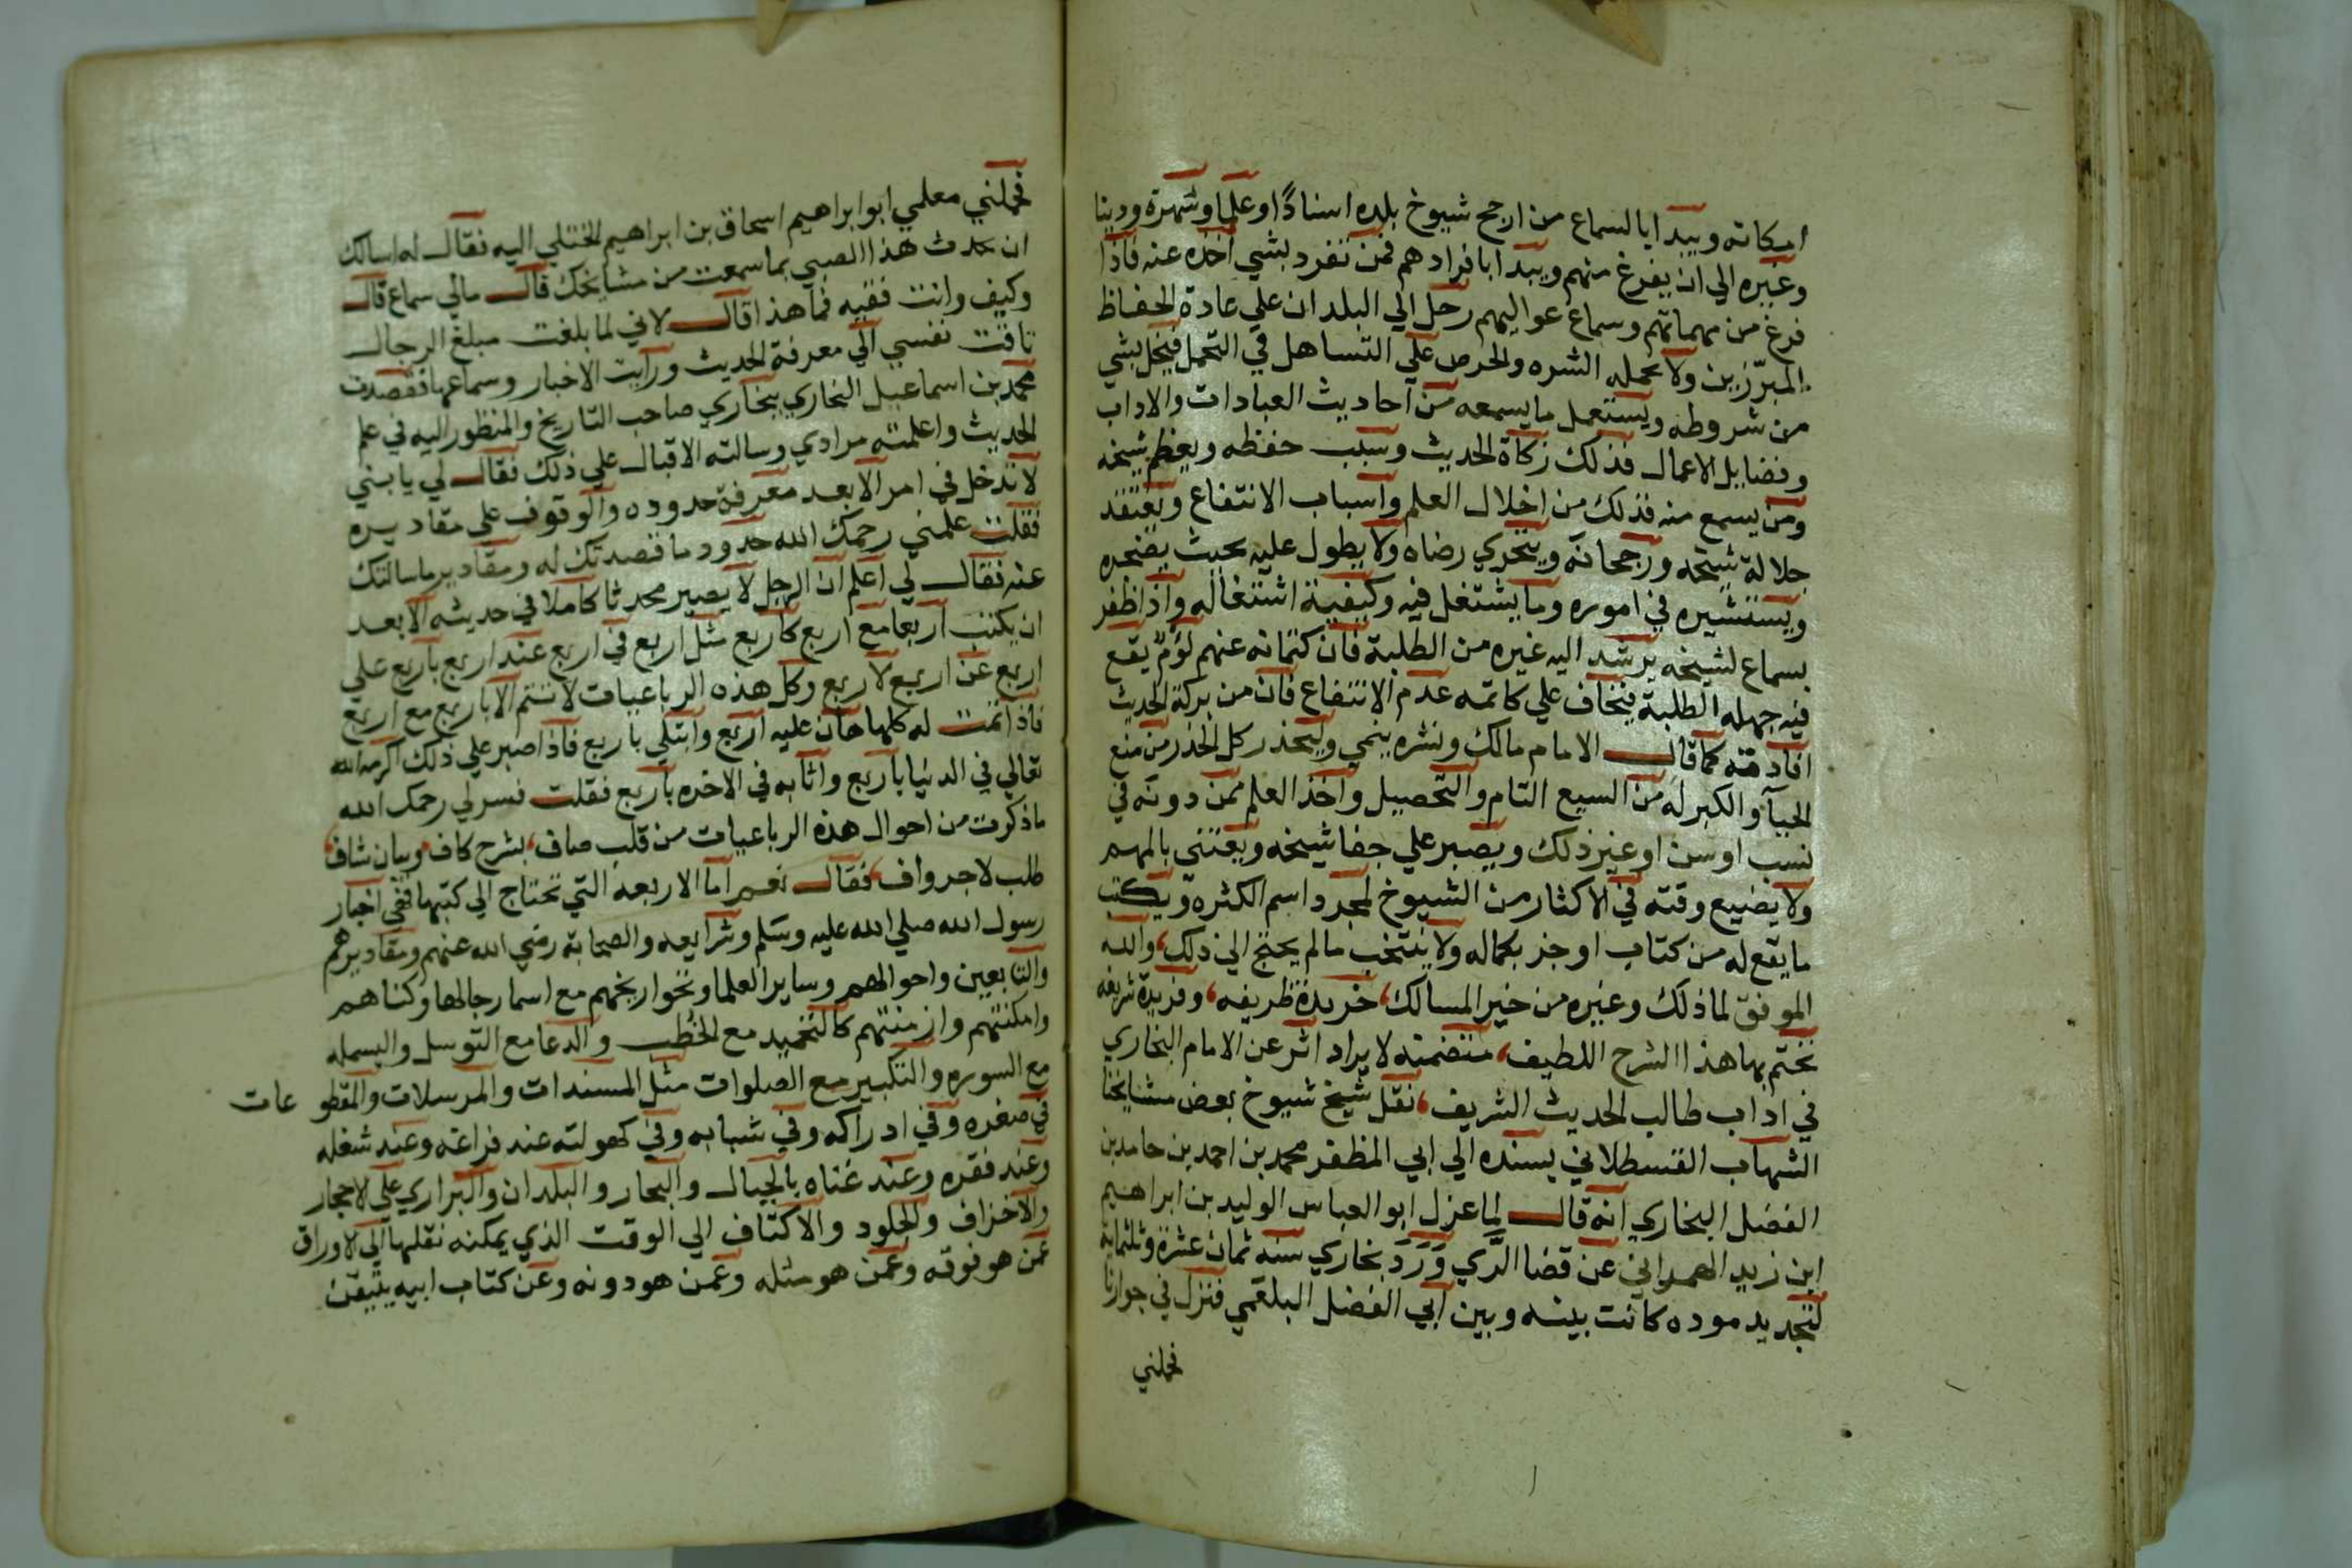 امكانه ويبدا بالسماع من ارجح شيوخ بلده اسنادًا وعلما وشهرة ودينا
وغيره الي ان يفرغ منهم ويبدا بافرادهم فمن تفرد بشي اخذه عنه فاذا
فرغ من مهماتهم وسماع عواليهم رحل الي البلدان علي عادة الحفاظ
المبرّزين ولا يحمله الشره والحرص علي التساهل في التحمل فيخل بشي
من شروطه ويستعمل ما يسمعه من احاديث العبادات والاداب
وفضايل الاعمال فذلك زكاة الحديث وسبب حفظه ويعظم شيخه
ومن يسمع منه فذلك من اجلال العلم واسباب الانتفاع ويعتقد
جلالة شيخه ورجحانه ويتحري رضاه ولا يطول عليه بحيث يضجره
ويستشيره في اموره وما يشتغل فيه وكيفية اشتغاله واذا ظفر
بسماع لشيخه يرشد اليه غيره من الطلبة فان كتمانه عنهم لؤم يقع
فيه جهله الطلبة فيخاف علي كاتمه عدم الانتفاع فان من بركة الحديث
افادته كما قال الامام مالك ونشره ينمي وليحذر كل الحذر من منع
الحيآ والكبر له من السيع التام والتحصيل واخذ العلم ممن دونه في
نسب او سن او غير ذلك ويصبر علي جفا شيخه ويعتني بالمهم
ولا يضيع وقته في الاكثار من الشيوخ لمجرد اسم الكثره ويكتب
ما يقع له من كتاب او جز بكماله ولا ينتخب ما لم يحتج الي ذلك، والله
الموفق لما ذلك وغيره من خير المسالك، خريدة ظريفه، وفريدة شريفه
نختم بها هذا الشرح اللطيف، متضمنه لايراد اثر عن الامام البخاري
في اداب طالب الحديث الشريف، نقل شيخ شيوخ بعض مشايخنا
الشهاب القسطلاني يسنده الي ابي المظفر محمد بن احمد بن حامد بن
الفضل البخاري انه قال لما عزل ابو العباس الوليد بن ابراهيم
ابن زيد الهمداني عن قضا الرّي وَرَدَ بخاري سنه ثمان عشرة وثلثماية
لتجديد موده كانت بينه وبين ابي الفضل البلعمي فنزل في جوارنا
فحملني
فحملني معلمي ابو ابراهيم اسحاق بن ابراهيم الختلي اليه فقال له اسالك
ان تحدث هذا الصبي بما سمعت من مشايخك قال مالي سماع قال
وكيف وانت فقيه فما هذا قال لاني لما بلغت مبلغ الرجال
تاقت نفسي الي معرفة الحديث ورايت الاخبار وسماعها فقصدت
محمد بن اسماعيل البخاري ببخاري صاحب التاريخ والمنظور اليه في علم
الحديث واعلمته مرادي وسالته الاقبال علي ذلك فقال لي يا بني
لا تدخل في امر الا بعد معرفة حدوده والوقوف علي مقاديره
فقلت علمني رحمك الله حدود ما قصدتك له ومقادير ما سالتك
عنه فقال لي اعلم ان الرجل لا يصير محدثا كاملا في حديثه الا بعد
ان يكتب اربعا مع اربع كاربع مثل اربع في اربع عند اربع باربع علي
اربع عن اربع لاربع وكل هذه الرباعيات لا تتم الا باربع مع اربع
فاذا تمت له كلها هان عليه اربع وابتلي باربع فاذا صبر علي ذلك اكرمه الله
تعالي في الدنيا باربع واثابه في الاخره باربع فقلت فسر لي رحمك الله
ما ذكرت من احوال هذه الرباعيات من قلب صاف، بشرح كاف وبيان شاف،
طلب لاجر واف، فقال نعم اما الاربعه التي تحتاج الي كتبها ففي اخبار
رسول الله صلي الله عليه وسلم وشرايعه والصحابة رضي الله عنهم ومقاديرهم
والتابعين واحوالهم وساير العلما وتخواريخهم مع اسما رجالها وكناهم
وامكنتهم وازمنتهم كالتحميد مع الخطب والدعا مع التوسل والبسمله
مع السوره والتكبير مع الصلوات مثل المسندات والمرسلات والمقطوعات
في صغره وفي ادراكه وفي شبابه وفي كهولته عند فراغه وعند شغله
وعند فقره وعند غناه بالجبال والبحار والبلدان والبراري علي الاحجار
والاخزاف والجلود والاكتاف الي الوقت الذي يمكنه نقلها الي الاوراق
عمن هو فوقه وعمن هو مثله وعمن هو دونه وعن كتاب ابيه يتيقن